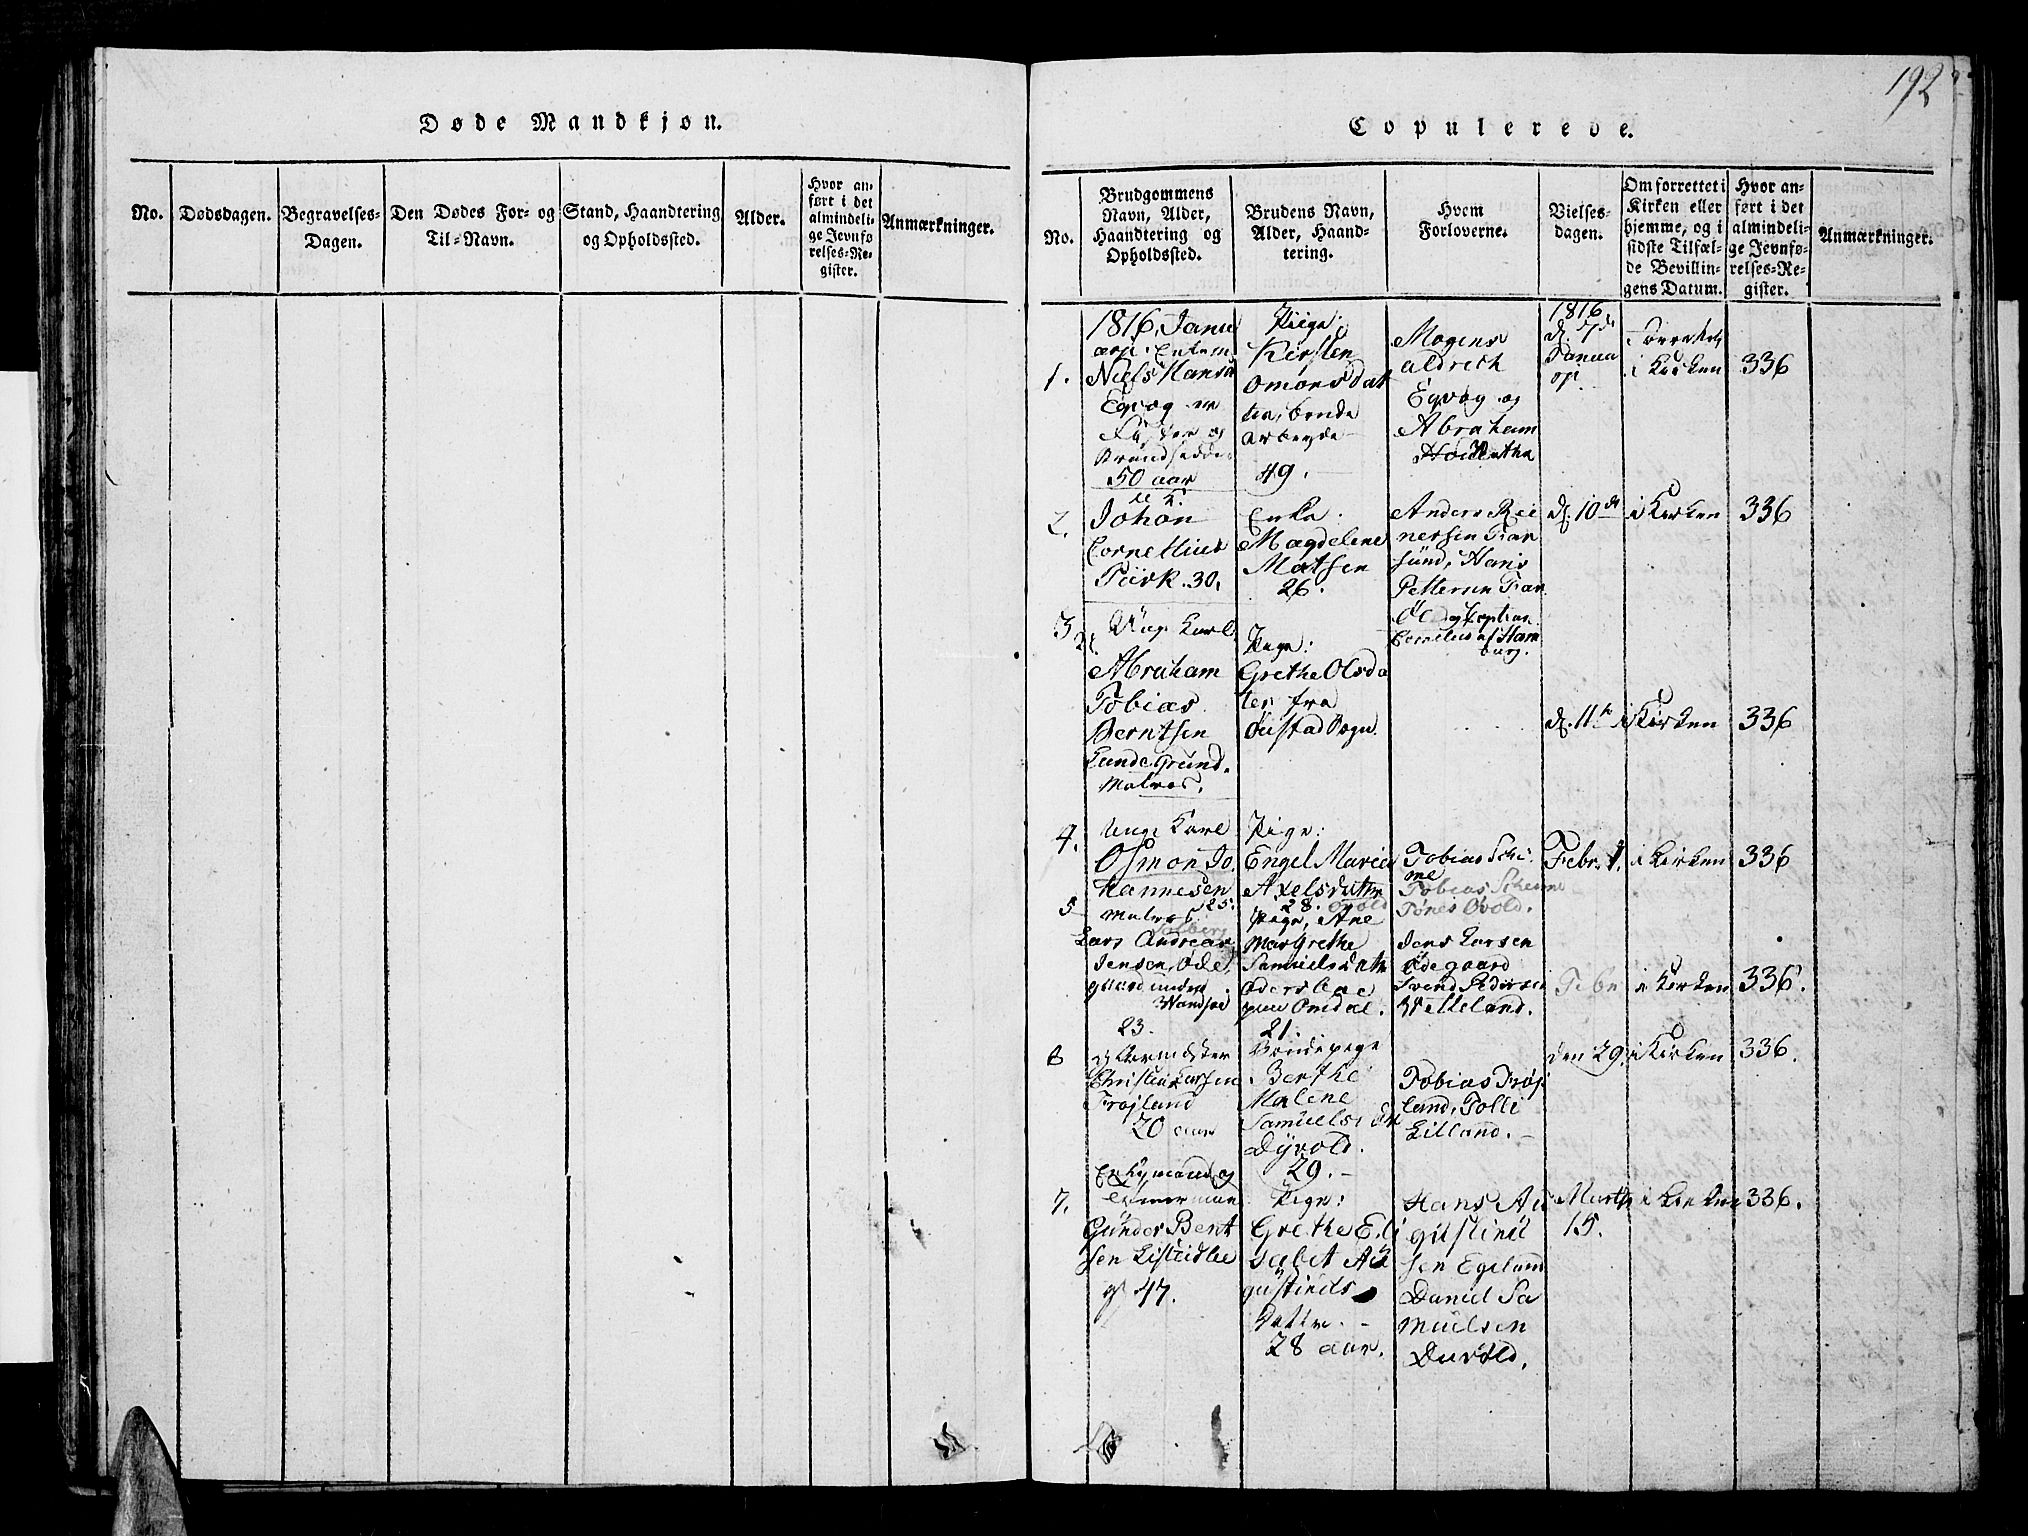 192
Døde Mandkjøn.
No.
Dødsdagen.
Begravelses-
Dagen.
Den Dødes For- og
Til-Navn.
Stand, Haandtering
og Opholdssted.
Alder.
Hvor an-
ført i det
almindeli-
ge Jevnfø
relses-Re-
gister.
Anmærkninger.
Copulerede.
No.
Brudgommens
Navn, Alder,
Haandtering og
Opholdssted.
Brudens Navn,
Alder, Haand-
tering.
Hvem
Forloverne.
Vielses-
dagen.
Om forrettet i
Kirken eller
hjemme, og i
sidste Tilfæl-
de Bevillin-
gens Datum.
Hvor an-
ført i det
almindeli-
ge Jevnfø-
relses-Re-
gister.
Anmærkninger.
1.
1816, Janu
Niels Hans
50 aar
Pige:
Kirsten
Omonsdat
49.
Mogens
Aldrich
Egvog og
Abraham
1816
d. 7de
Janua
i Kirken
336
2.
Johan
Cornelius
30.
Enke:
Magdelene
Matsen
26.
Anders Rei
nersen Far
sund, Hans
Pettersen Far
og
Cornelius af Ham
burg.
d. 10de
i Kirken
336
3
Unge Karl
Abraham
Tobias
Berntsen
Lunde Grund.
Matros.
Pige:
Grethe Olsda
ter fra
Sogn
d. 11te
i Kirken
336
4.
Unge Karl
Osmon Jo
hannesen
Matros
25.
Pige:
Engel Marie
Axelsdatter
28.
Tobias
Tobias
Tønes Øvold.
Febr. 1.
i Kirken
336
5
Lars Andreas
Jensen Øde
gaard under
23.
Pige, Ane
Margrethe
Samuelsdatr
Omdal.
21.
Jens Larsen
Ødegaard
Svend Pedersen
Vetteland.
Febr
i Kirken
336.
6
Christian Larsen
Frøjland
20 aar
Bondepige
Berthe
Malene
Samuels
Dyvold.
29.
Tobias Frøj
land, Tolli
Lilland.
den 29.
i Kirken
336.
7.
Enkemand og
Gunder Bent
sen
47.
Pige:
Grethe Eli
sabet Au
gustinds
Datter.
28 aar.
Hans Au
gustinu
sen Egeland
Daniel Sa
muelsen
Duvold.
Marts
15.
i Kirken
336.